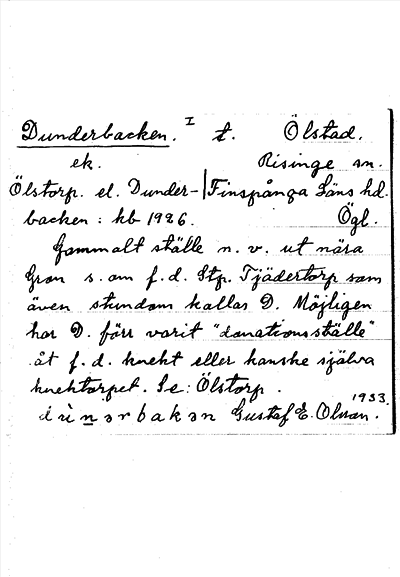 Dunderbacken. I t. Ölstad.
ek. Risinge sn.
Ölstorp. el. Dunder- Finspånga Läns hd.
backen: hb 1926. Ögl.
Gammalt ställe n. v. ut nära
Gron s. om f. d. Stp. Tjädertorp som
även stundom kallas D. Möjligen
har D. förr varit "donationsställe"
åt f. d. knekt eller kanske själva
knektorpet. Se: Ölstorp.
1933.
dùnərbakən Gustaf E. Olsson.